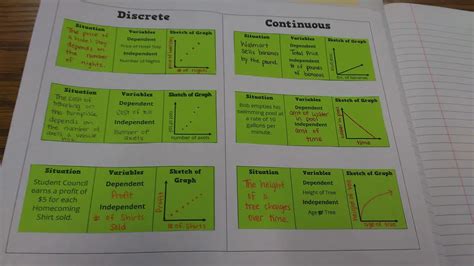 Discrete
Situation
The price of
a hotel stay
depends on
the number
of nights.
Variables
Dependent
Price of Hotel Stay
Independent
Number of Nights
Sketch of Graph
# of nights
Situation
The cost of
traveling on
the turnpike
depends on
the number of
axles a vehicle
has.
Variables
Dependent
cost of toll
Independent
number of
axles
Sketch of Graph
# of axles
Situation
Student Council
earns a profit of
$5 for each
Homecoming
Shirt sold.
Variables
Dependent
Profit
Independent
# of Shirts
Sold
Sketch of
Graph
Profit
# of Shirts
Continuous
Situation
Walmart
sells bananas
by the pound.
Variables
Dependent
Total Price
Independent
# of pounds
of bananas
Sketch of Graph
lbs of bananas
Situation
Bob empties his
swimming pool at
a rate of 10
gallons per
minute.
Variables
Dependent
amt of water
in pool
Independent
amt of
time
Sketch of Graph
amt of time
Situation
The height
of a
tree changes
over time.
Variables
Dependent
Height of Tree
Independent
Age of Tree
Sketch of
Graph
age of tree